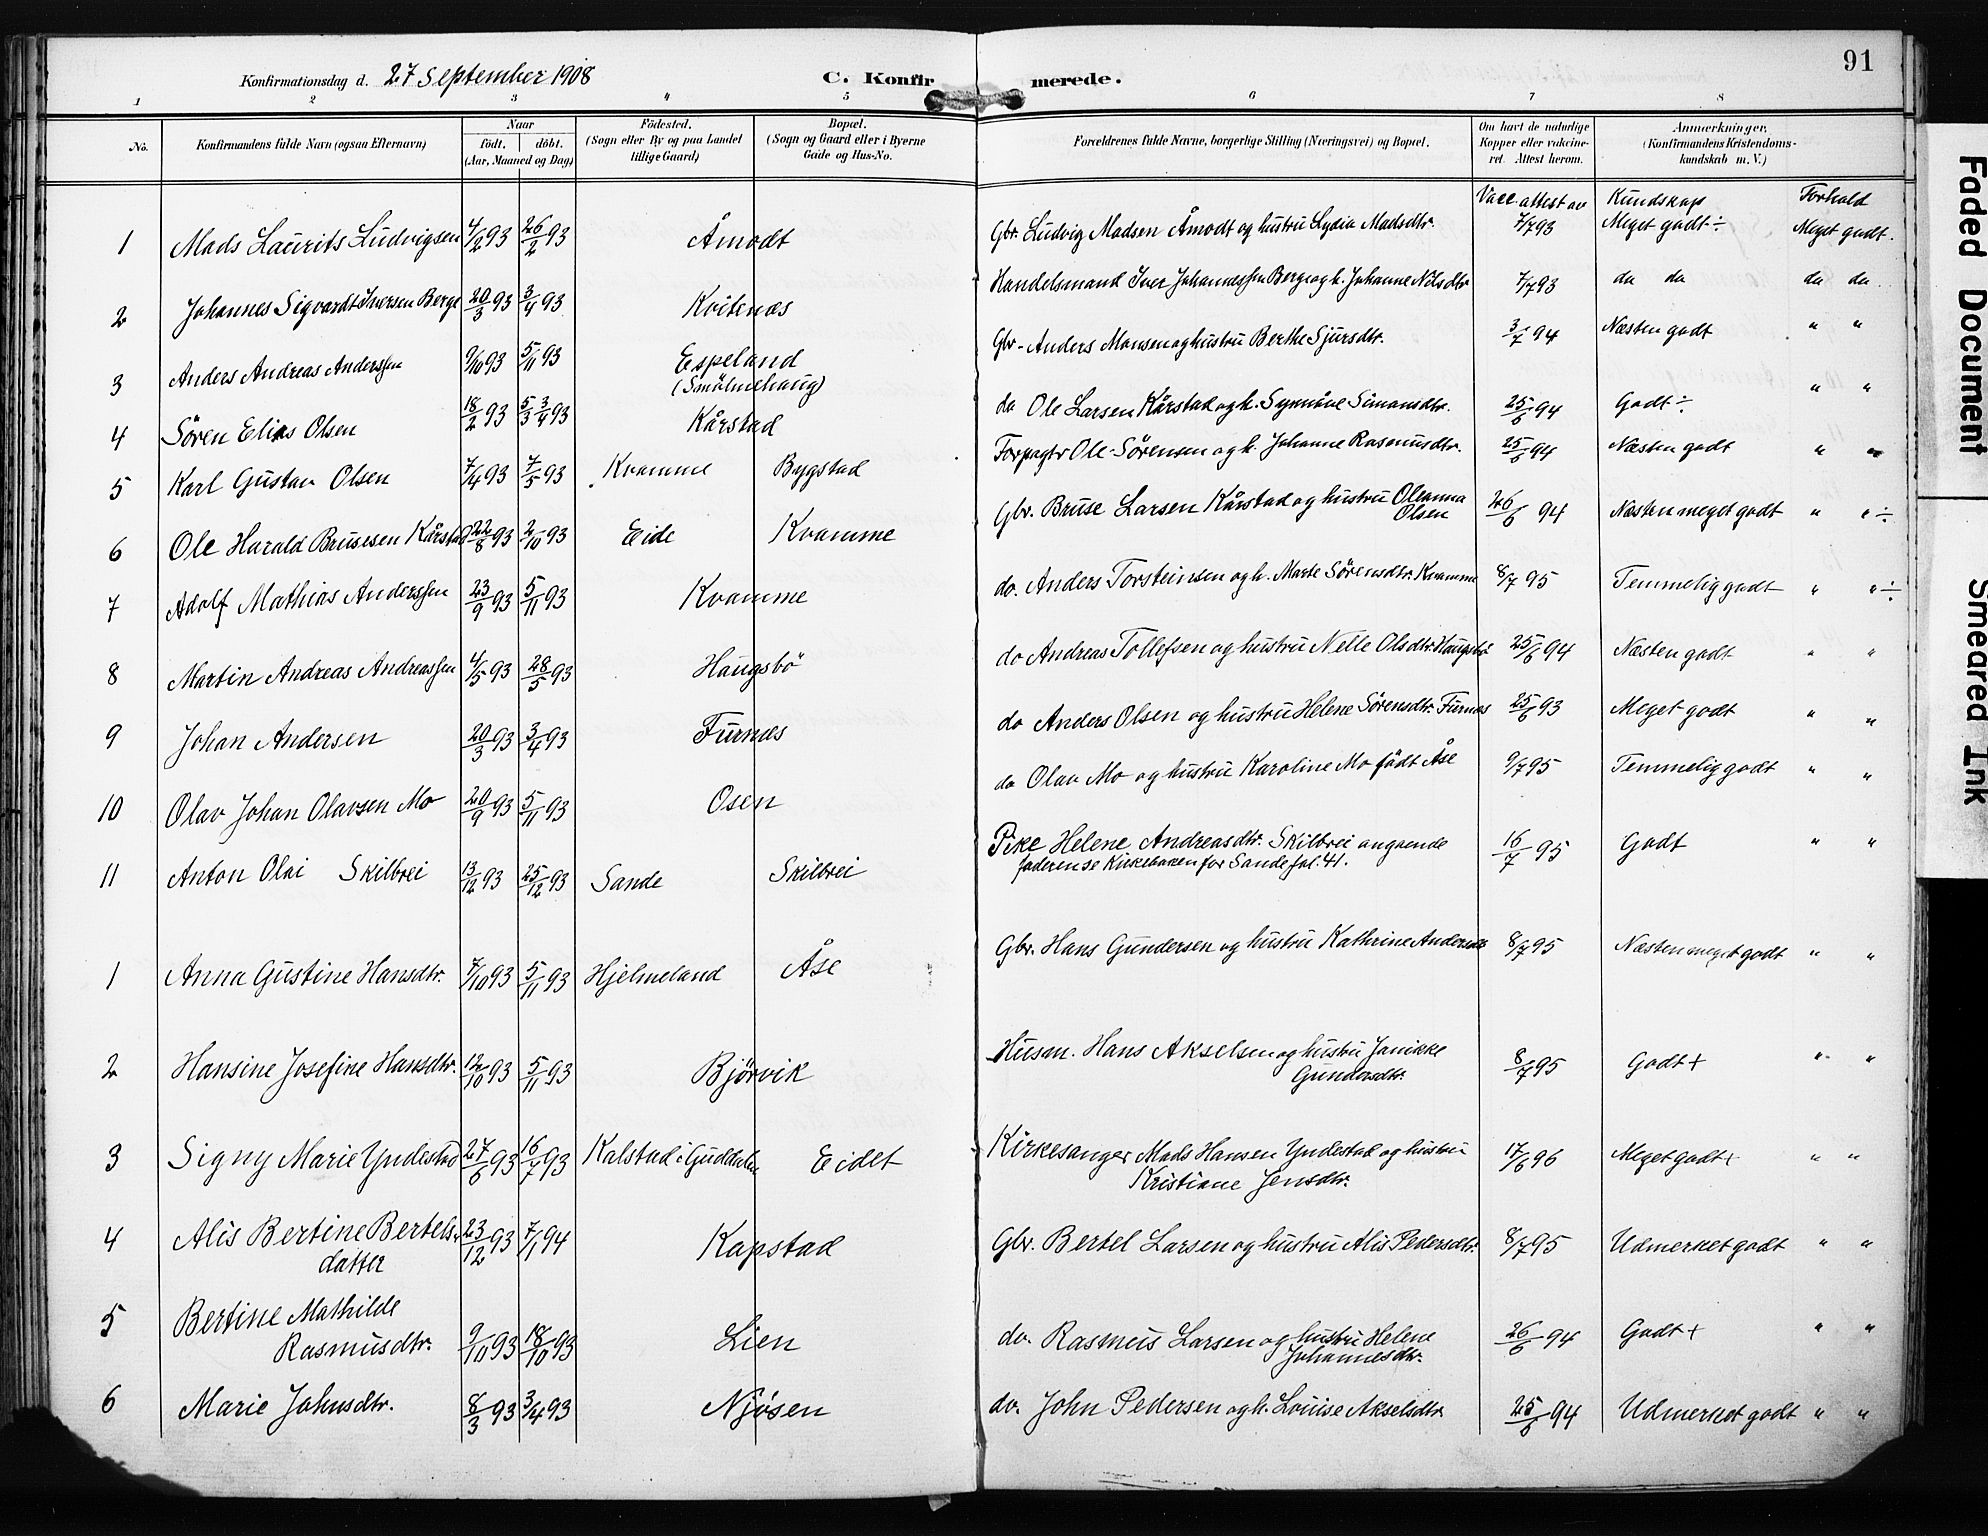 91
Konfirmationsdag d. 27 September 1908 C. Konfirmerede.
1 2 3 4 5 6 7 8
No. Konfirmandens fulde Navn (ogsaa Efternavn) Naar födt. döbt. (Aar, Maaned og Dag) Födested. (Sogn eller By og paa Landet tillige Gaard) Bopæl. (Sogn og Gaard eller i Byerne Gade og Hus-No. Forældrenes fulde Navne, borgerlige Stilling (Næringsvei) og Bopæl. Om havt de naturlige Kopper eller vaccineret. Attest herom. Anmærkninger. (Konfirmandens Kristendomskundskab m. V.)
Vacc. attest av Kundskap Forhold
1 Mads Laurits Ludvigsen 4/2 93 26/2 93 Åmodt Gbr. Ludvig Madsen Åmodt og hustru Lydia Madsdtr. 7/7 93 Meget godt ÷ Meget godt.
2 Johannes Sigvardt Iversen Berge 20/3 93 3/4 93 Kvitenæs Handelsmand Iver Johannessen Berge og h. Johanne Nilsdtr 7/7 93 do do do do
3 Anders Andreas Anderssen 9/10 93 5/11 93 Espeland (Smølmehaug) Gbr. Anders Monsen og hustru Berthe Sjursdtr. 3/7 94 Næsten godt " "
4 Søren Elias Olsen 18/2 93 5/3 3/4 93 Kårstad do Ole Larsen Kårstad og h. Synnöve Simonsdtr. 25/6 94 Godt ÷ " "
5 Karl Gustav Olsen 7/4 93 7/5 93 Kvamme Bygstad Forpagtr Ole Sörensen og h. Johanne Rasmusdtr. 25/6 94 Næsten godt " "
6 Ole Harald Brusesen Kårstad 22/8 93 2/10 93 Eide Kvamme Gbr. Bruse Larsen Kårstad og hustru Oleanna Olsen 26/6 94 Næsten meget godt " " ÷
7 Adolf Mathias Anderssen 23/9 93 5/11 93 Kvamme do. Anders Torsteinsen og h. Marte Sørensdtr. Kvamme 8/7 95 Temmelig godt " " ÷
8 Martin Andreas Andreassen 4/5 93 28/5 93 Haugsbö do Andreas Tollefsen og hustru Nelle Olsdtr. Haugsbö 25/6 94 Næsten godt " "
9 Johan Andersen 20/3 93 3/4 93 Furnes do Anders Olsen og hustru Helene Sørensdtr. Furnes 25/6 93 Meget godt " "
10 Olav Johan Olavsen Mo 20/9 93 5/11 93 Osen do Olav Mo og hustru Karoline Mo födt Åse 9/7 95 Temmelig godt " "
11 Anton Olai Skilbrei 13/12 93 25/12 93 Sande Skilbrei Pike Helene Andreasdtr. Skilbrei angaende faderen se Kirkeboken for Sande fol. 41. 16/7 95 Godt " "
1 Anna Gustine Hansdtr. 7/10 93 5/11 93 Hjelmeland Åse Gbr. Hans Gundersen og hustru Kathrine 8/7 95 Næsten meget godt " "
2 Hansine Josefine Hansdtr. 12/10 93 5/11 93 Bjørvik Husm. Hans Akselsen og hustru Janikke Gundersdtr. 8/7 95 Godt + " "
3 Signy Marie Yndestad 27/6 93 16/7 93 Kalstad i Guddalen Eidet Kirkesanger Mads Hansen Yndestad og hustru Kristiane Jensdtr. 17/6 96 Meget godt + " "
4 Alis Bertine Bertelsdatter 23/12 93 7/1 94 Kapstad Gbr. Bertel Larsen og hustru Alis Pedersdtr. 8/7 95 Udmerket godt " "
5 Bertine Mathilde Rasmusdtr. 9/10 93 18/10 93 Lien do. Rasmus Larsen og hustru Helene Johannesdtr. 26/6 94 Godt + " "
6 Marie Johnsdtr. 8/3 93 3/4 93 Njøsen do. John Pedersen og h. Louise Akselsdtr 25/6 94 Udmerket godt " "
Faded Document
Smeared Ink